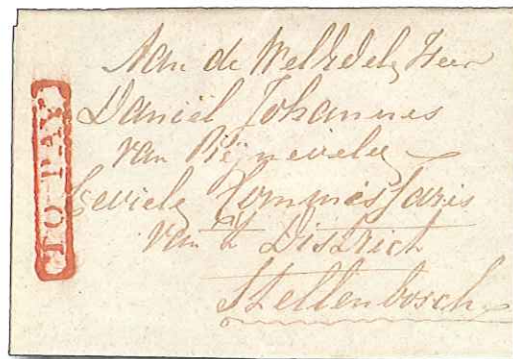 Aan de WelEdele Heer
Daniël Johannes
van Rÿnevelds
Civiele Commissaris
van 't District
Stellenbosch
TO PAY